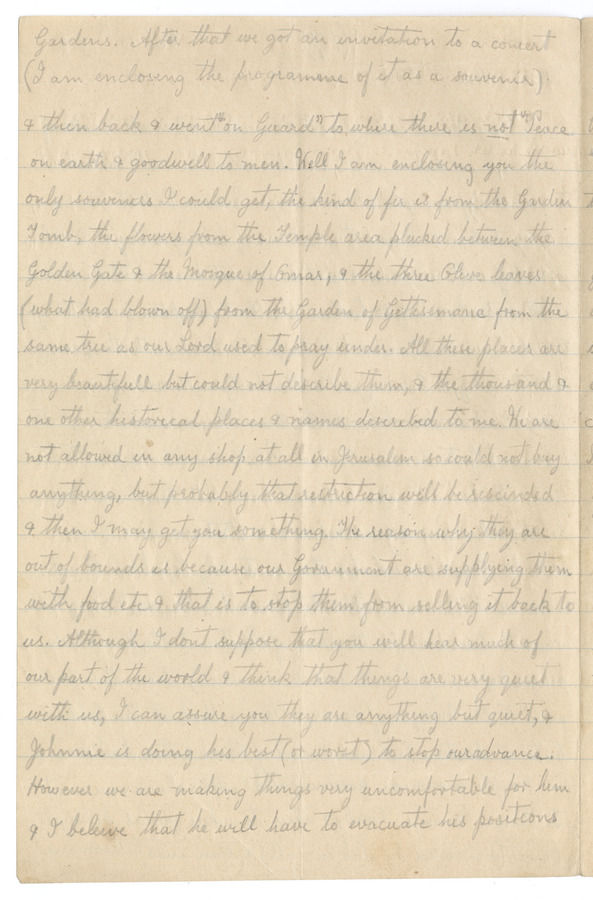 Gardens. After that we got an invitation to a concert
(I am enclosing the programme of it as a souvenir).
& then back & went "on Guard" to where there is not "Peace
on earth & goodwill to men. Well I am enclosing you the
only souvenirs I could get, the kind of fir is from the Garden
Tomb, the flowers from the Temple area plucked between the
Golden Gate & the Mosque of Omar, & the three Olive leaves
(what had blown off) from the Garden of Gethsemane from the
same tree as our Lord used to pray under. All these places are
very beautifull but could not describe them, & the thousand &
one other historical places & names described to me. We are
not allowed in any shop at all in Jerusalem so could not buy
anything, but probably that restriction will be rescinded
& then I may get you something. The reason why they are
out of bounds is because our Government are supplying them
with food etc & that is to stop them from selling it back to
us. Although I dont suppose that you will hear much of
our part of the world & think that things are very quiet
with us, I can assure you they are anything but quiet, &
Johnnie is doing his best (or worst) to stop our advance.
However we are making things very uncomfortable for him
& I beleive that he will have to evacuate his positions